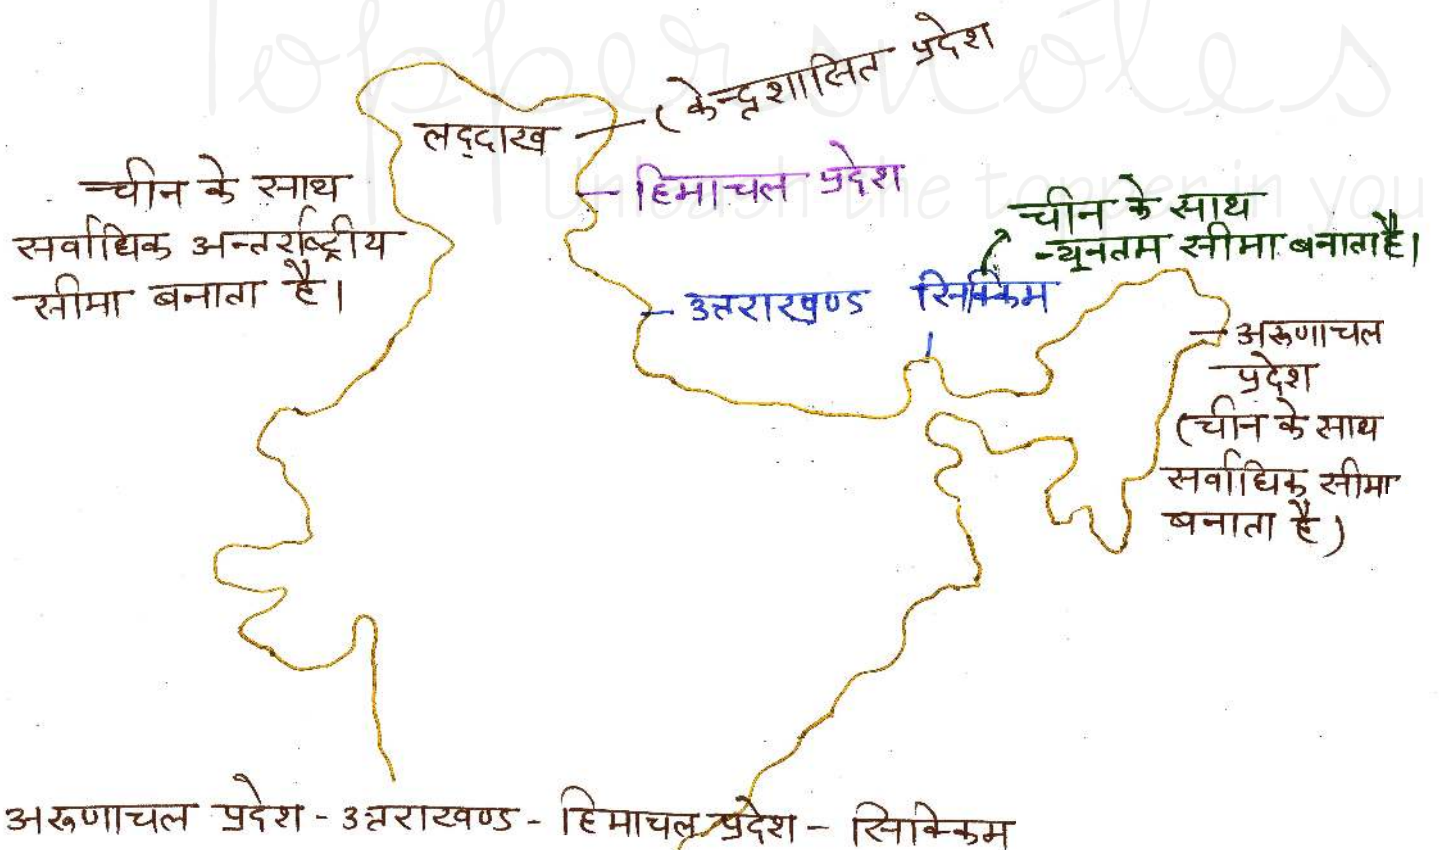 Toppersnotes
Unleash the topper in you
(केन्द्रशासित प्रदेश
लद्दाख
हिमाचल प्रदेश
चीन के साथ
सर्वाधिक अन्तर्राष्ट्रीय
सीमा बनाता है।
चीन के साथ
न्यूनतम सीमा बनाता है।
उत्तराखण्ड
सिक्किम
अरूणाचल
प्रदेश
(चीन के साथ
सर्वाधिक सीमा
बनाता है)
अरूणाचल प्रदेश - उत्तराखण्ड - हिमाचल प्रदेश - सिक्किम